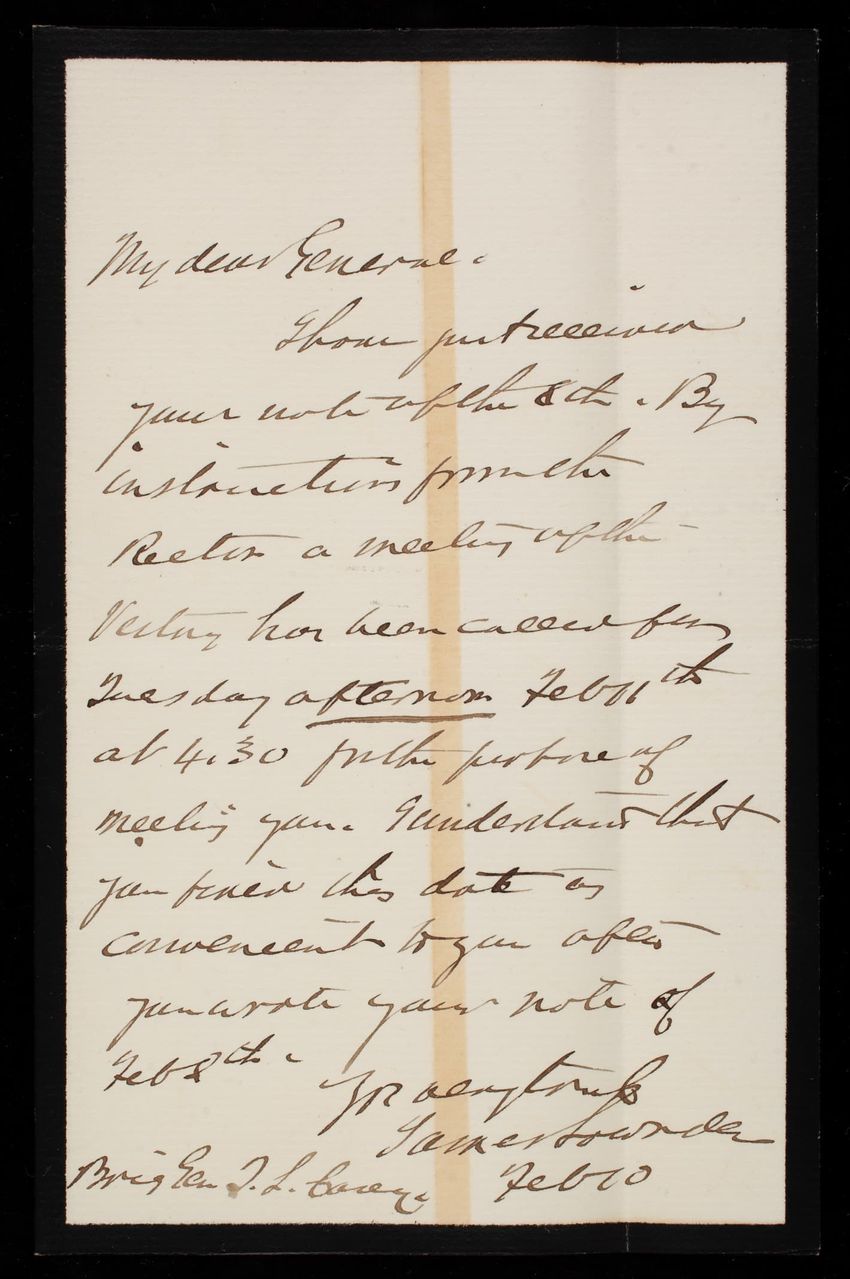 My dear General.
I have just received
your note of the 8th. By
instructions from the
Rector a meeting of the
Vestry has been called for
Tuesday afternoon Feb 11th
at 4.30 for the purpose of
meeting you. I understand that
you fixed this date as
convenient to you after
you wrote your note of
Feb 8th.
Yrs very truly
James Lowndes
Brig Gen T. L. Casey. Feb 10